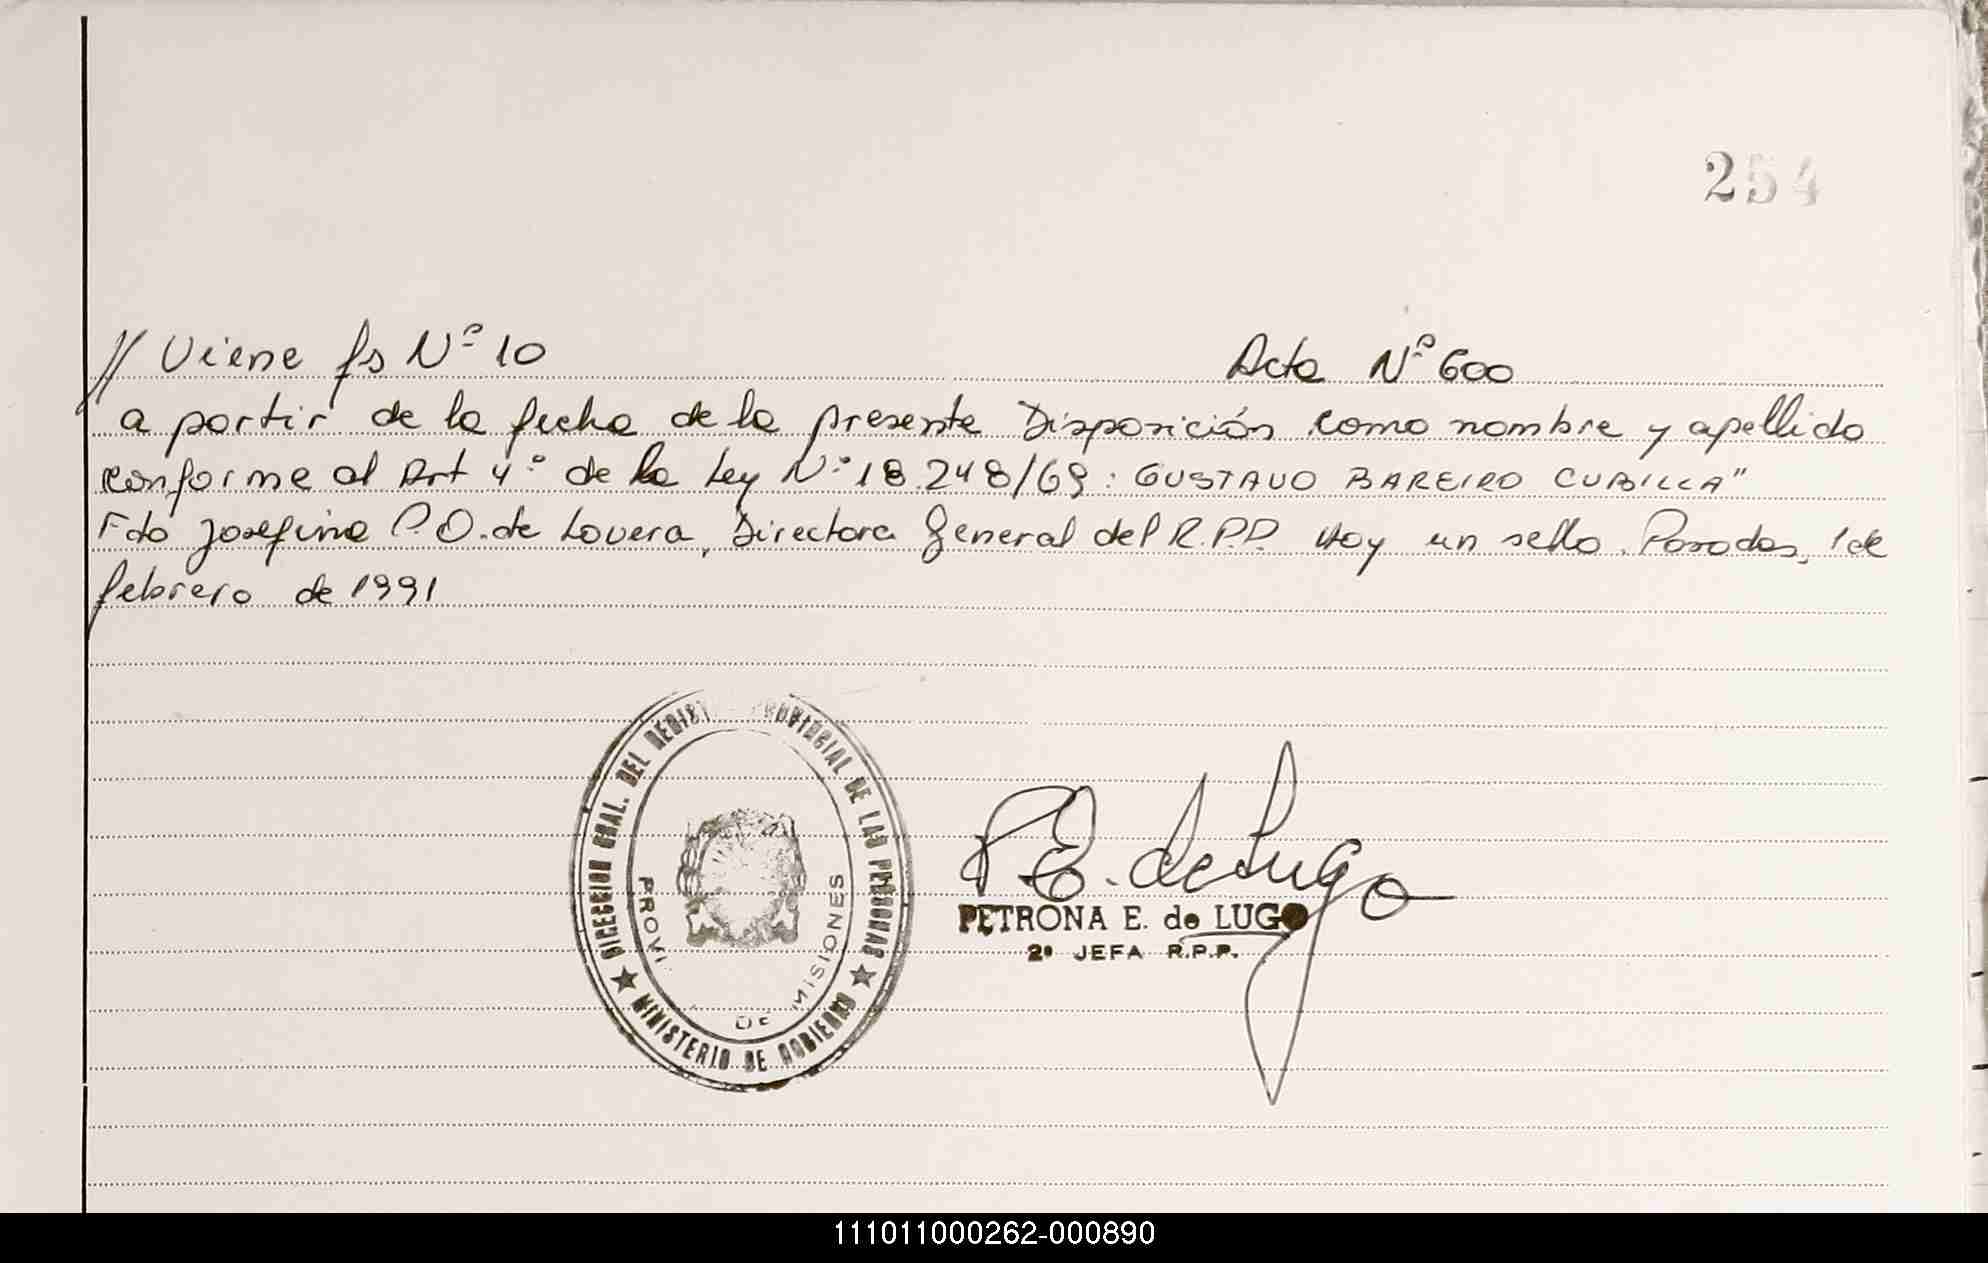 254
// Viene fs Nº 10 Acta Nº 600
a partir de la fecha de la presente Disposición como nombre y apellido
conforme al Art 4º de la Ley Nº 18.248/69: GUSTAVO BAREIRO CUBILLA"
Fdo Josefina P. O. de Lovera, Directora General del R.P.P. Hay un sello. Posadas, 1 de
febrero de 1991
DIRECCION GRAL. DEL REGIST PROVINCIAL DE LAS PERSONAS
★ MINISTERIO DE GOBIERNO ★
PROVI DE MISIONES
P E. de Lugo
PETRONA E. de LUGO
2ª JEFA R.P.P.
111011000262-000890